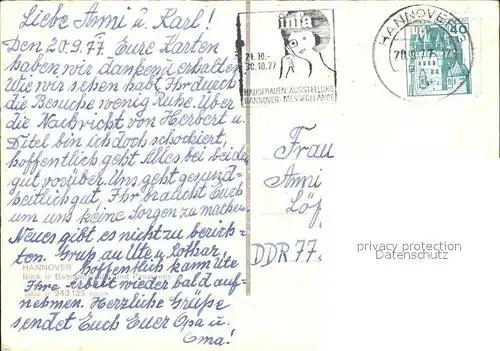 Liebe Anni u. Karl!
Den 20.9.77. Eure Karten
haben wir dankend erhalten.
Wie wir sehen habt Ihr durch
die Besuche wenig Ruhe. Über
die Nachricht von Herbert u.
bin ich doch schockiert,
hoffentlich geht Alles bei beiden
gut vorüber. Uns geht gesund-
heitlich gut, Ihr braucht Euch
um uns keine Sorgen zu machen.
Neues gibt es nicht zu berich-
ten. Gruß an Ute u. Lothar,
hoffentlich kann Ute
Ihre Arbeit wieder bald auf-
nehmen. Herzliche Grüße
sendet Euch Euer Opa u.
Oma!
HANNOVER
Blick in Bahnhofstraße und Passerelle
infa
21.10.-
30.10.77
HAUSFRAUEN-AUSSTELLUNG
HANNOVER-MESSEGELÄNDE
HANNOVER
20.9.77
40
Frau
Anni
DDR 77
privacy protection
Datenschutz